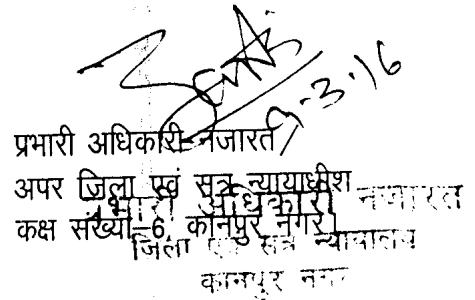 9-3-16
प्रभारी अधिकारी-नजारत
अपर जिला एवं सत्र न्यायाधीश
कक्ष संख्या-6, कानपुर नगर।
प्रभारी अधिकारी नजारत
जिला एवं सत्र न्यायालय
कानपुर नगर